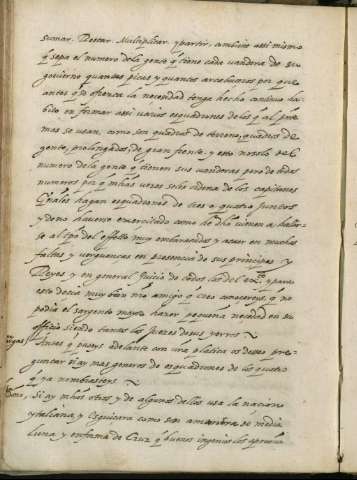 sumar. Restar. Multiplicar. y partir. combiene assi mismo
q sepa el numero dela gente q tiene cada vandera de su
govierno quantas picas y quantos arcabuzes por que
antes q se ofrezca la necesidad tenga hecho continuo ha
bito en formar assi varios esquadrones delos q al pre
mas se usan, como son quadrado de terreno, quadros de
gente, prolongados, de gran frente. y esto no solo del
numero dela gente q tienen sus vanderas pero de todos
numeros por q mchas vezes suele ordena. de los capitanes
Gñales hagan esquadrones de tres o quatro juntos
y de no haverse exercitado como he dho vienen a hallar
se al tpo del effetto muy embaraçados y a caer en muchas
faltas, y verguenzas en presencia de sus principes y
Reyes y en general Juicio de todos los del exto. y para
esto decia muy bien mi amigo q creo conocereys, q no
podia el sargento mayor hazer pequeña necedad en su
officio siendo tantos los juezes de sus yerros
Antes q paseys adelante con vra platica os deseo pre
guntar si ay mas generos de esquadrones de los quatro
q ya nombrasteys
Si ay mchos otros y de algunos dellos usa la nacion
ytaliana, y Esguizara como son media
Luna, y en forma de Cruz q buenos ingenios los